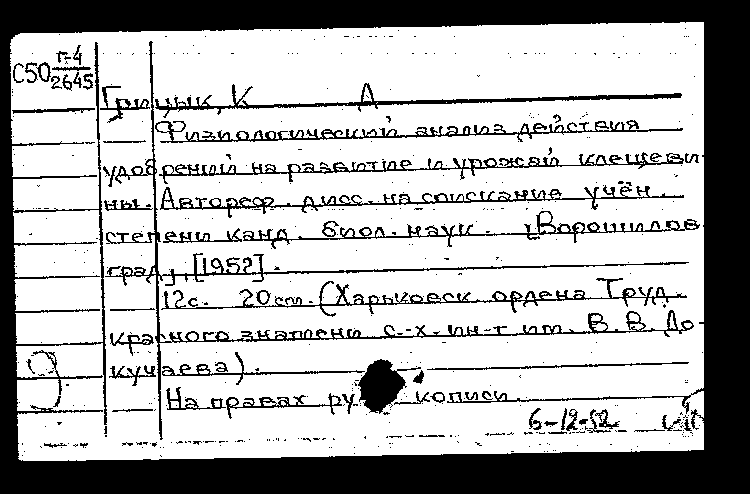 С50 г-4
2645
Грицык, К А
Физиологический анализ действия
удобрений на развитие и урожай клещеви-
ны. Автореф. дисс. на соискание учён.
степени канд. биол. наук. [Ворошилов-
град], [1952].
12с. 20см. (Харьковск. ордена Труд.
красного знамени с.-х. ин-т им. В. В. До-
кучаева).
На правах рукописи.
6-12-52